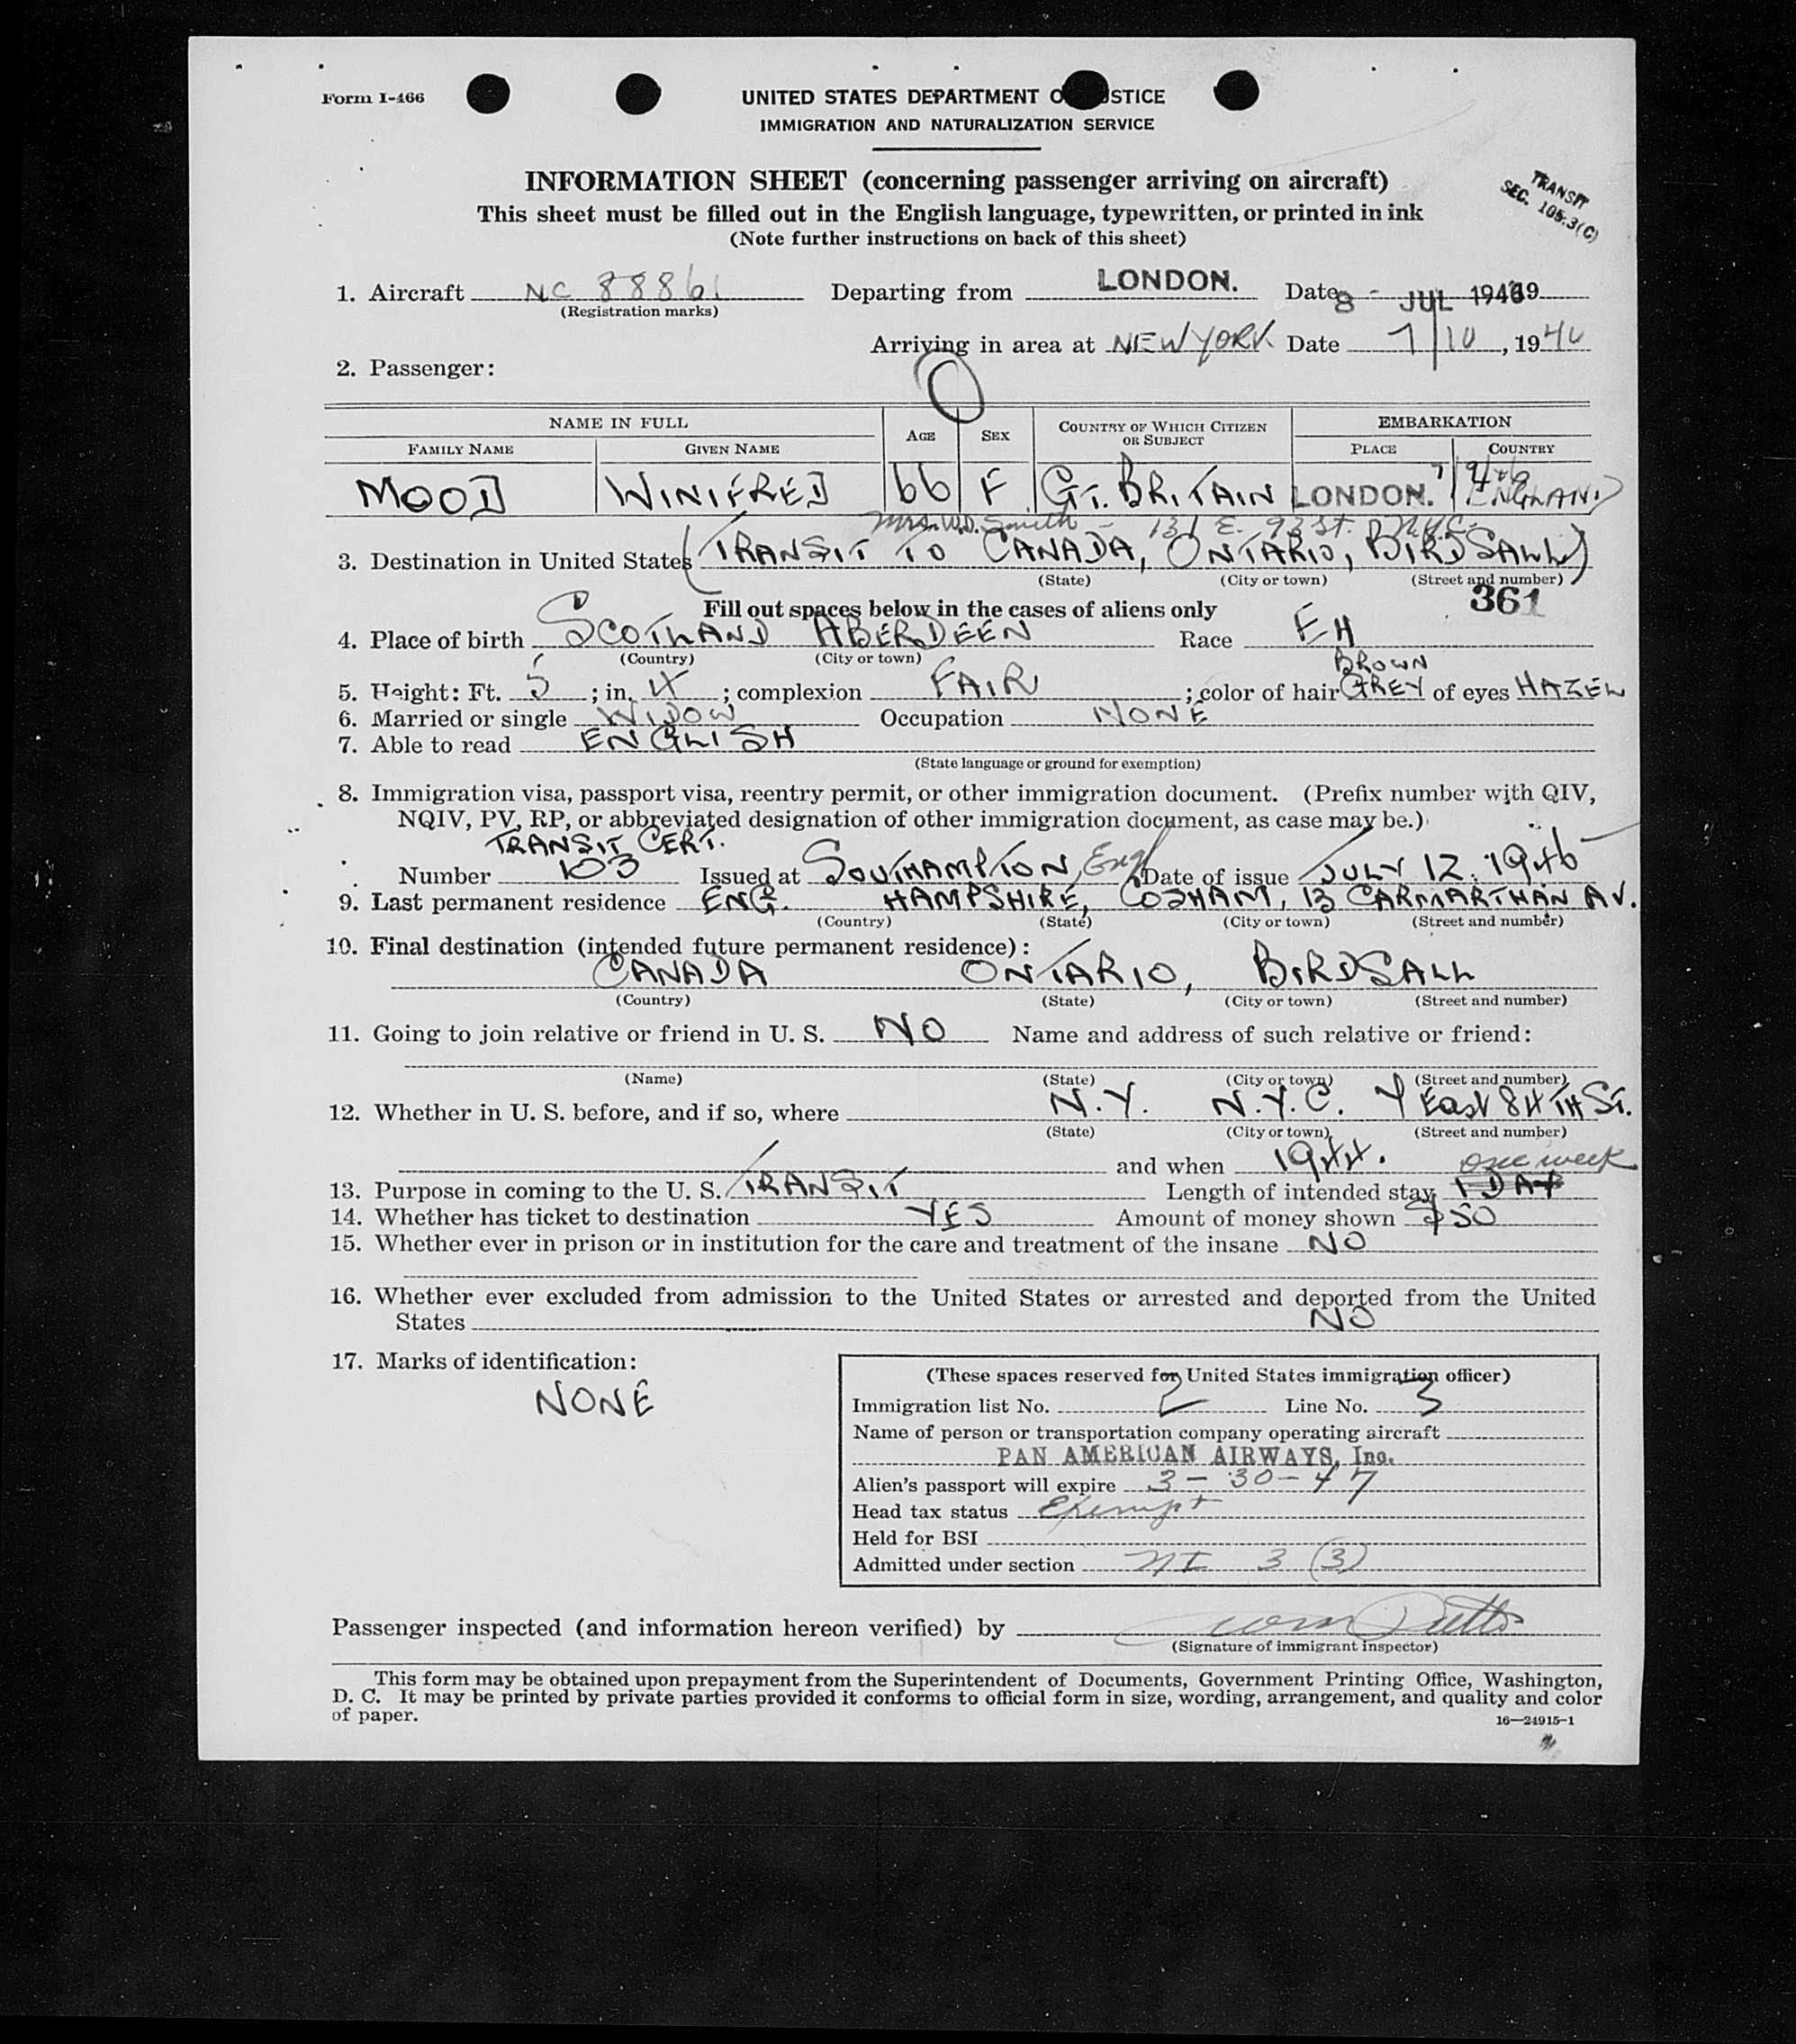 Form I-466
UNITED STATES DEPARTMENT O STICE
IMMIGRATION AND NATURALIZATION SERVICE
INFORMATION SHEET (concerning passenger arriving on aircraft)
TRANSIT
SEC. 105.3(C)
This sheet must be filled out in the English language, typewritten, or printed in ink
(Note further instructions on back of this sheet)
1. Aircraft NC 88861 Departing from LONDON. Date 8 - JUL 1946 19
(Registration marks)
Arriving in area at NEW YORK Date 7/10, 1946
2. Passenger:
NAME IN FULL
FAMILY NAME GIVEN NAME AGE SEX COUNTRY OF WHICH CITIZEN OR SUBJECT EMBARKATION PLACE COUNTRY
MOOD WINIFRED 66 F GT. BRITAIN LONDON. ENGLAND
Mrs. W.D. Smith - 131 E. 93 St. N.Y.C.
3. Destination in United States (TRANSIT TO CANADA, ONTARIO, BIRDSALL)
(State) (City or town) (Street and number)
361
Fill out spaces below in the cases of aliens only
4. Place of birth SCOTLAND ABERDEEN Race EH
(Country) (City or town)
BROWN
5. Height: Ft. 5; in. 4; complexion FAIR; color of hair GREY of eyes HAZEL
6. Married or single WIDOW Occupation NONE
7. Able to read ENGLISH
(State language or ground for exemption)
8. Immigration visa, passport visa, reentry permit, or other immigration document. (Prefix number with QIV,
NQIV, PV, RP, or abbreviated designation of other immigration document, as case may be.)
TRANSIT CERT.
Number 103 Issued at SOUTHAMPTON, Engl Date of issue JULY 12. 1946
9. Last permanent residence ENG. HAMPSHIRE, COSHAM, 13 CARMARTHAN AV.
(Country) (State) (City or town) (Street and number)
10. Final destination (intended future permanent residence):
CANADA ONTARIO, BIRDSALL
(Country) (State) (City or town) (Street and number)
11. Going to join relative or friend in U. S. NO Name and address of such relative or friend:
(Name) (State) (City or town) (Street and number)
12. Whether in U. S. before, and if so, where N.Y. N.Y.C. East 84TH ST.
(State) (City or town) (Street and number)
and when 1944.
one week
13. Purpose in coming to the U. S. TRANSIT Length of intended stay 1 DAY
14. Whether has ticket to destination YES Amount of money shown $50
15. Whether ever in prison or in institution for the care and treatment of the insane NO
16. Whether ever excluded from admission to the United States or arrested and deported from the United
States NO
17. Marks of identification:
NONE
(These spaces reserved for United States immigration officer)
Immigration list No. 2 Line No. 3
Name of person or transportation company operating aircraft
PAN AMERICAN AIRWAYS, Inc.
Alien's passport will expire 3-30-47
Head tax status Exempt
Held for BSI
Admitted under section NI 3 (3)
Passenger inspected (and information hereon verified) by
(Signature of immigrant inspector)
This form may be obtained upon prepayment from the Superintendent of Documents, Government Printing Office, Washington,
D. C. It may be printed by private parties provided it conforms to official form in size, wording, arrangement, and quality and color
of paper.
16—24915-1